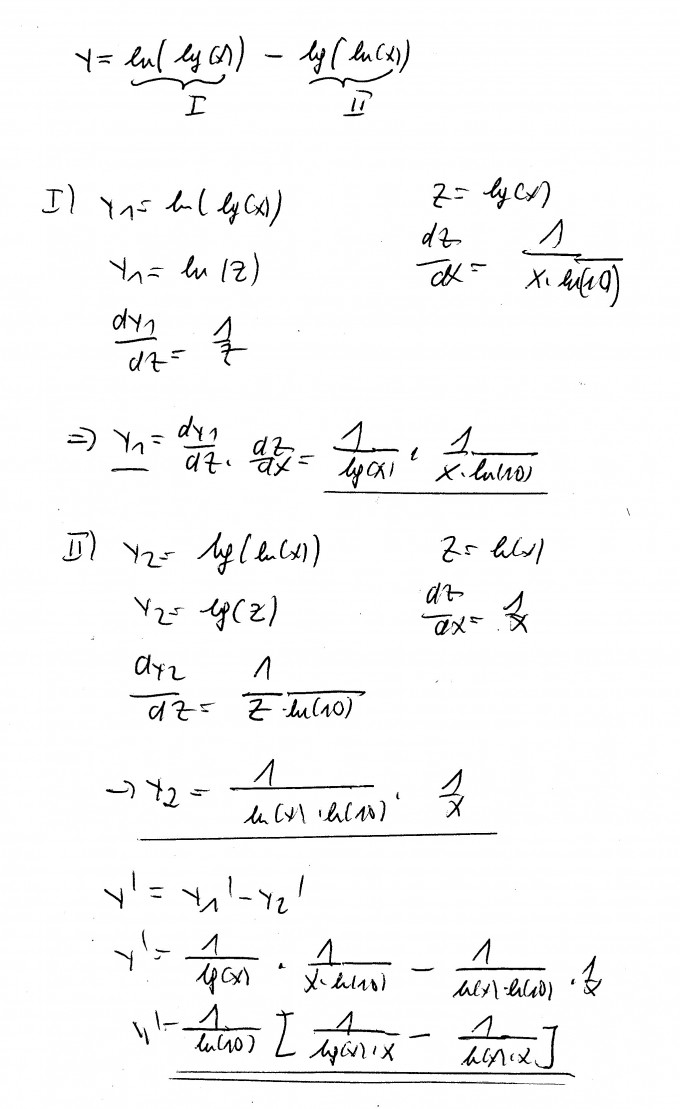 y = ln(lg(x)) − lg(ln(x))
I II
I) y1 = ln(lg(x)) z = lg(x)
y1 = ln(z) dz/dx = 1/(x·ln(10))
dy1/dz = 1/z
⇒ y1 = dy1/dz · dz/dx = 1/lg(x) · 1/(x·ln(10))
II) y2 = lg(ln(x)) z = ln(x)
y2 = lg(z) dz/dx = 1/x
dy2/dz = 1/(z·ln(10))
→ y2 = 1/(ln(x)·ln(10)) · 1/x
y' = y1' − y2'
y' = 1/lg(x) · 1/(x·ln(10)) − 1/(ln(x)·ln(10)) · 1/x
y' = 1/ln(10) [1/(lg(x)·x) − 1/(ln(x)·x)]